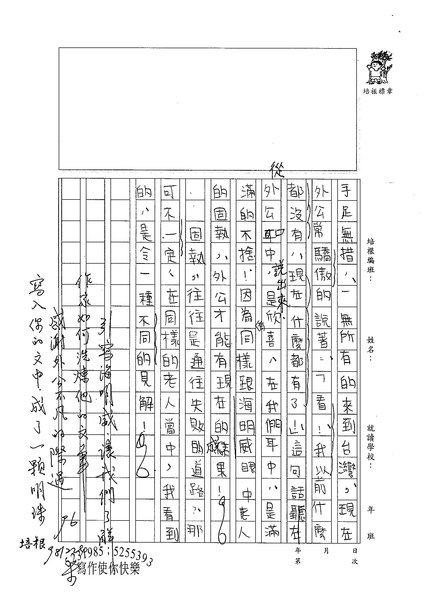 培根標章
培根編班：
姓名：
就讀學校：
年 班
日 次
月
年 第
手足無措，一無所有的來到台灣，現在
外公常驕傲的說著：「看！我以前什麼
都沒有，現在什麼都有了！」這句話聽在
外公耳中，是欣喜，在我們耳中，是滿
從
說出來
滿的不捨！因為同樣跟海明威眼中老人
的固執，外公才能有現在的成果！
固執，往往是通往失敗的道路，那
可不一定，在同樣的老人當中，我看到
的，是令一種不同的見解！
96
引寫海明威讓我們了解
作家如何洗鍊他的文筆
感謝外公不凡的際遇
寫入你的文中成了一顆明珠
96
培根
5255393
寫作使你快樂